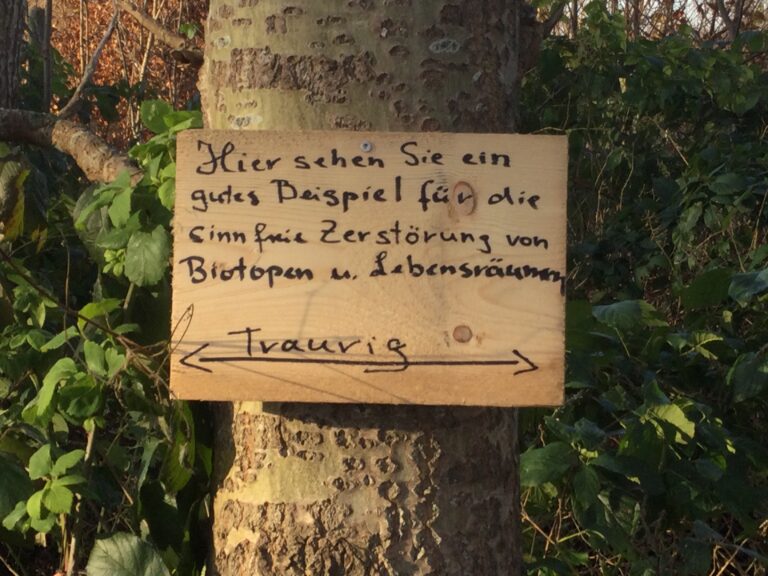 Hier sehen Sie ein
gutes Beispiel für die
sinnfreie Zerstörung von
Biotopen u. Lebensräumen
Traurig